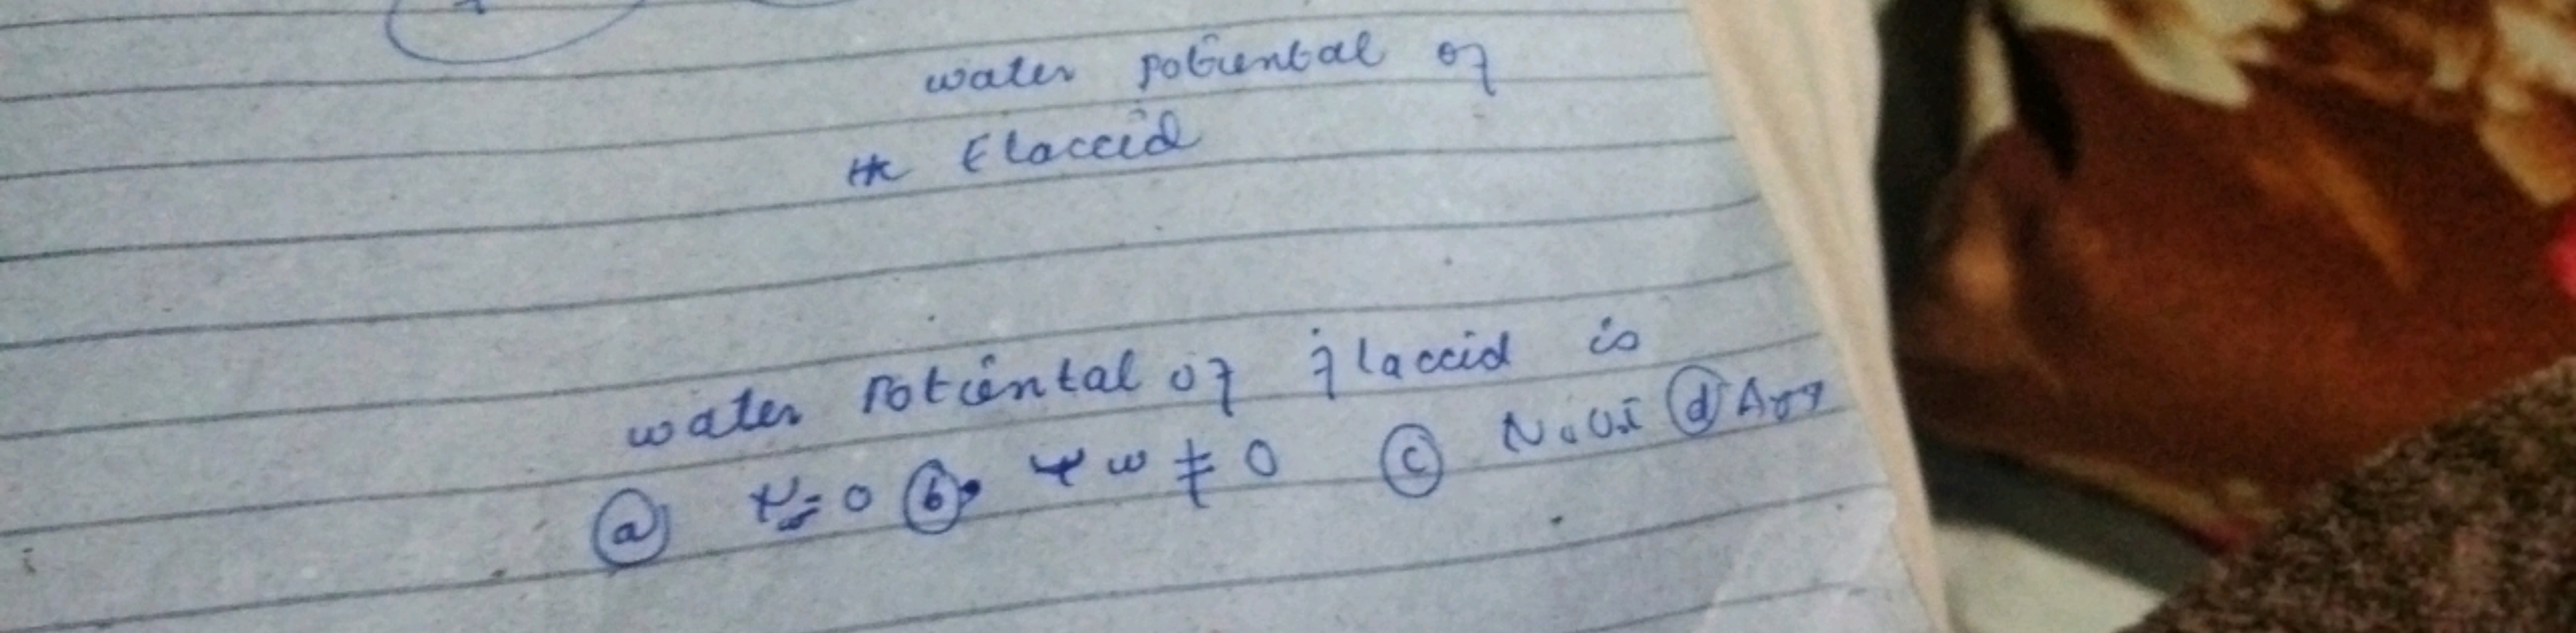 water potiental of
the Elaccid
water potiental of flaccid is
(a) Ψw=0 (b) Ψw ≠ 0 (c) N.O.T (d) Any